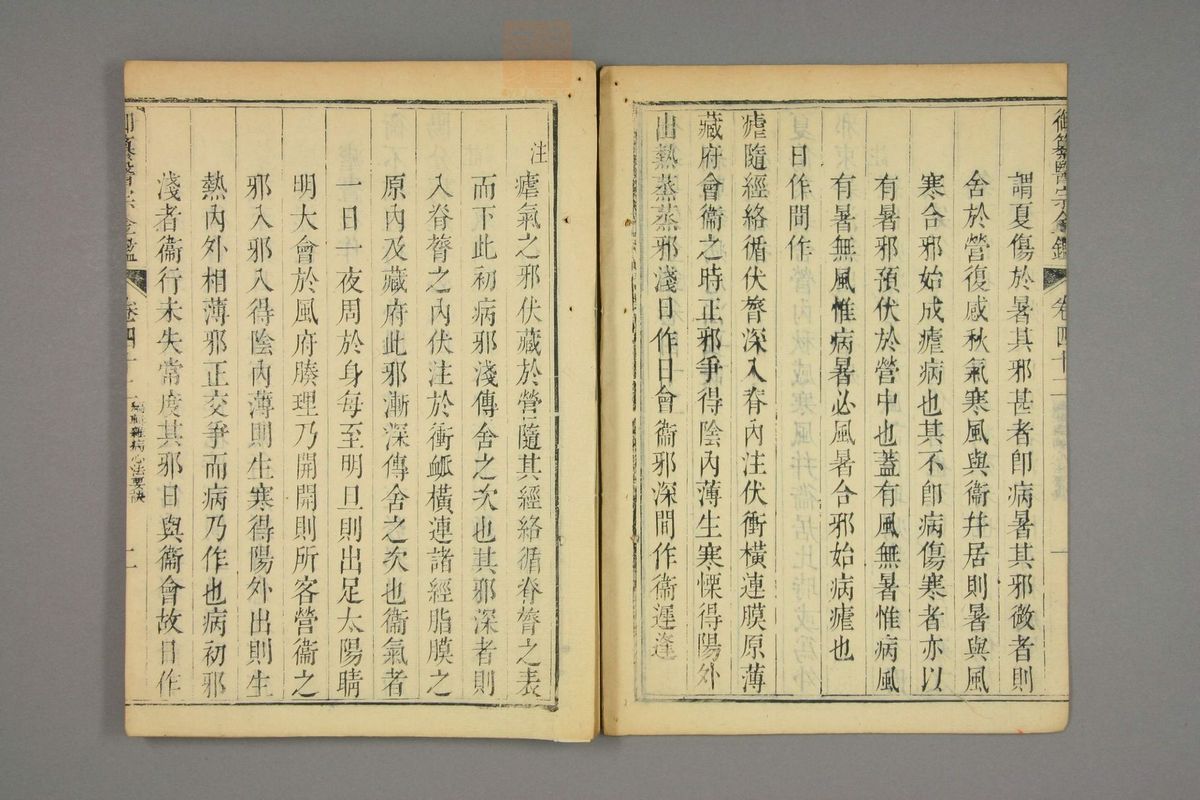 御纂醫宗金鑑 卷四十二
謂夏傷於暑其邪甚者卽病暑其邪微者則
舍於營復感秋氣寒風與衞并居則暑與風
寒合邪始成瘧病也其不卽病傷寒者亦以
有暑邪預伏於營中也蓋有風無暑惟病風
有暑無風惟病暑必風暑合邪始病瘧也
日作間作
瘧隨經絡循伏膂深入脊內注伏衝橫連膜原薄
藏府會衞之時正邪爭得陰內薄生寒慄得陽外
出熱蒸蒸邪淺日作日會衞邪深間作衞遲逢
注 瘧氣之邪伏藏於營隨其經絡循脊膂之表
而下此初病邪淺傳舍之次也其邪深者則
入脊膂之內伏注於衝脈橫連諸經脂膜之
原內及藏府此邪漸深傳舍之次也衞氣者
一日一夜周於身每至明旦則出足太陽睛
明大會於風府腠理乃開開則所客營衞之
邪入邪入得陰內薄則生寒得陽外出則生
熱內外相薄邪正交爭而病乃作也病初邪
淺者衞行未失常度其邪日與衞會故日作
御纂醫宗金鑑 卷四十二 雜病心法要訣